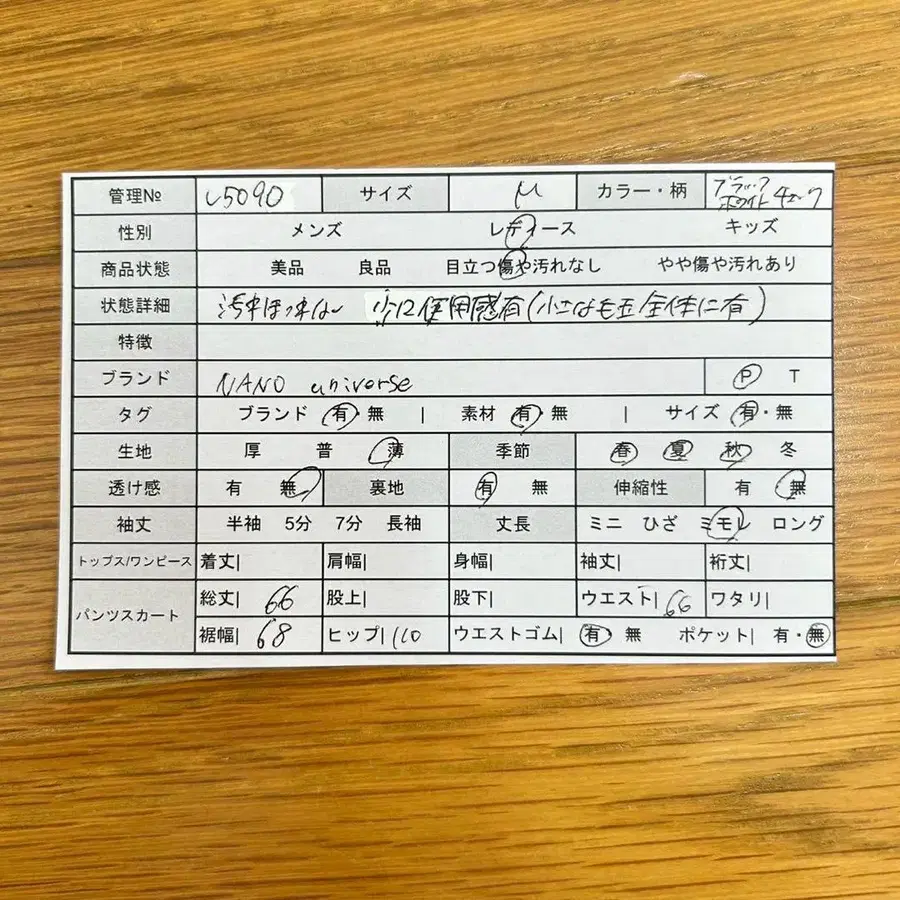 管理№ L5090 サイズ M カラー・柄 ブラック ホワイト チェック
性別 メンズ レディース キッズ
商品状態 美品 良品 目立つ傷や汚れなし やや傷や汚れあり
状態詳細 少し使用感有(小さな毛玉全体に有)
特徴
ブランド NANO universe P T
タグ ブランド 有・無 | 素材 有・無 | サイズ 有・無
生地 厚 普 薄 季節 春 夏 秋 冬
透け感 有 無 裏地 有 無 伸縮性 有 無
袖丈 半袖 5分 7分 長袖 丈長 ミニ ひざ ミモレ ロング
トップス/ワンピース 着丈| 肩幅| 身幅| 袖丈| 裄丈|
パンツスカート 総丈| 66 股上| 股下| ウエスト| 66 ワタリ|
裾幅| 68 ヒップ| 110 ウエストゴム| 有・無 ポケット| 有・無